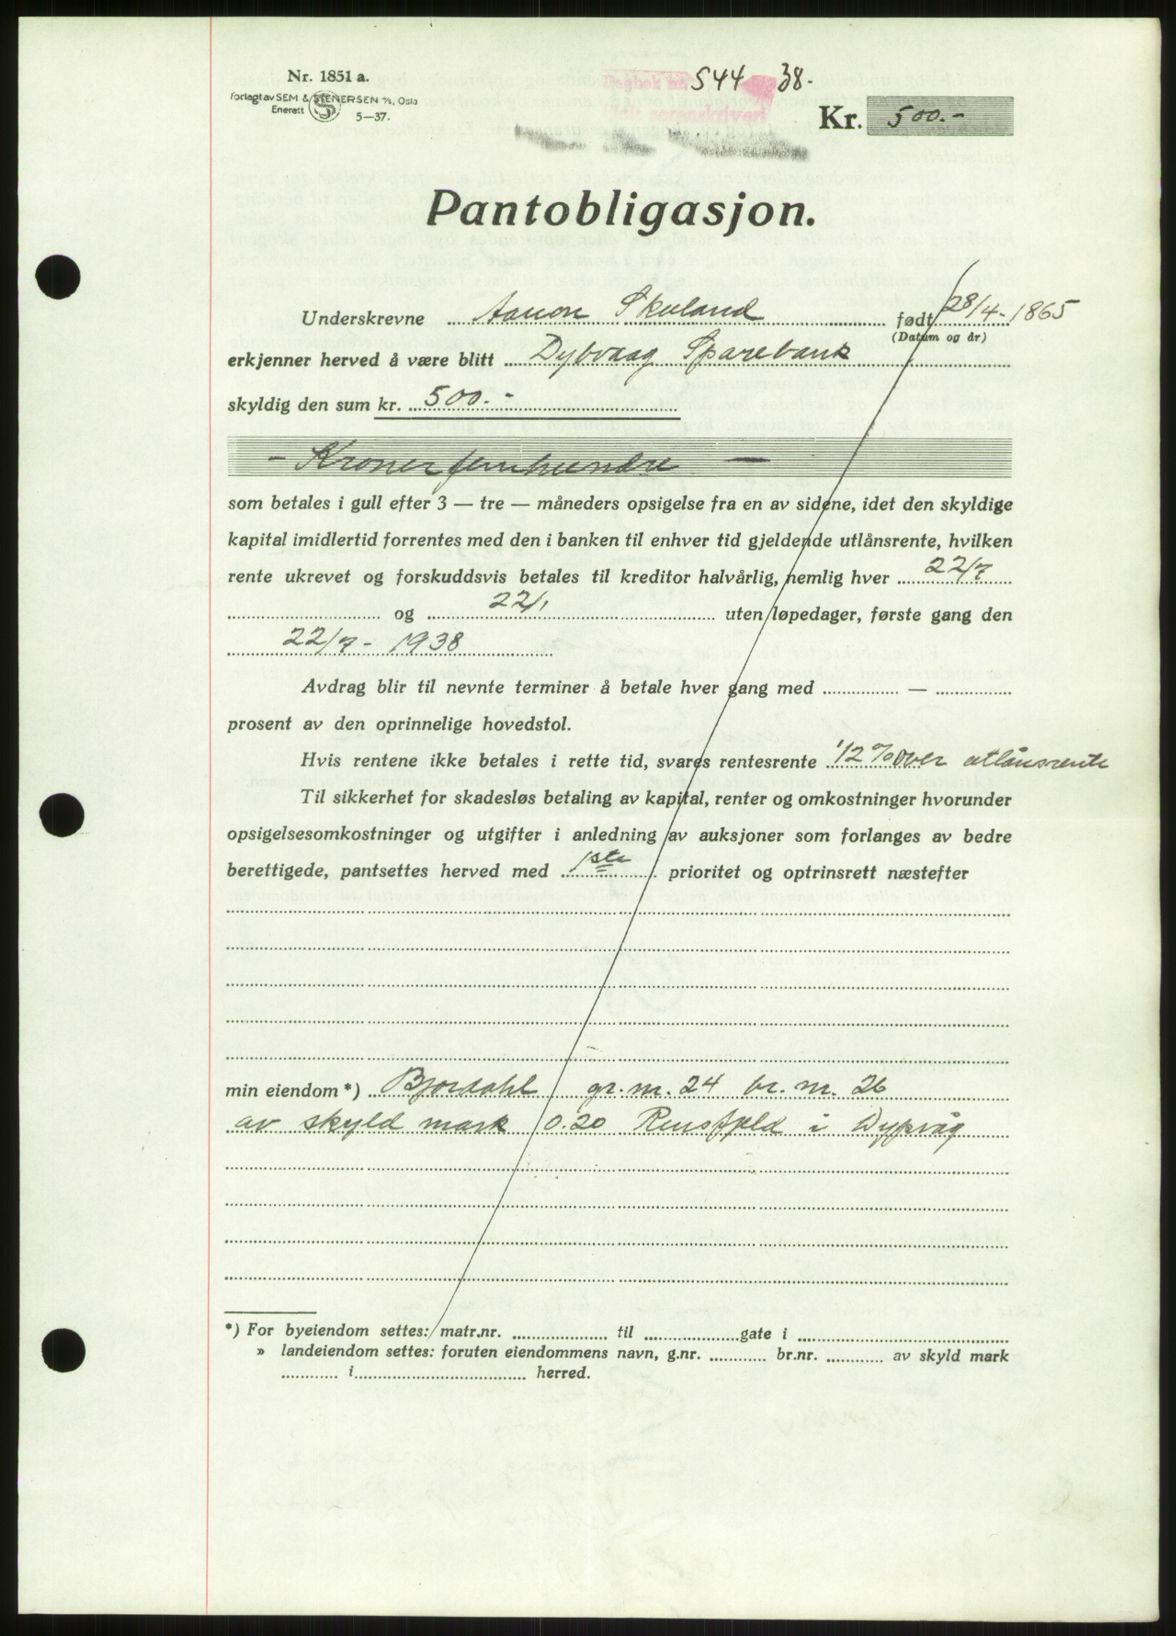 Nr. 1851 a.
Forlagt av SEM & STENERSEN A/S, Oslo
Enerett 5—37.
Dagbok nr. 544 38.-
Kr. 500.-
Pantobligasjon.
Underskrevne Aanon Skuland født 28/4-1865
(Datum og år)
erkjenner herved å være blitt Dybvaag Sparebank
skyldig den sum kr. 500.-
- Kroner femhundre -
som betales i gull efter 3 — tre — måneders opsigelse fra en av sidene, idet den skyldige
kapital imidlertid forrentes med den i banken til enhver tid gjeldende utlånsrente, hvilken
rente ukrevet og forskuddsvis betales til kreditor halvårlig, nemlig hver 22/7
og 22/1 uten løpedager, første gang den
22/7- 1938
Avdrag blir til nevnte terminer å betale hver gang med —
prosent av den oprinnelige hovedstol.
Hvis rentene ikke betales i rette tid, svares rentesrente 1/2 % over utlånsrente
Til sikkerhet for skadesløs betaling av kapital, renter og omkostninger hvorunder
opsigelsesomkostninger og utgifter i anledning av auksjoner som forlanges av bedre
berettigede, pantsettes herved med 1ste prioritet og optrinsrett næstefter
min eiendom *) Bjordahl gr. nr. 24 br. nr. 26
av skyld mark 0.20 i Dypvåg
*) For byeiendom settes: matr.nr. til gate i
» landeiendom settes: foruten eiendommens navn, g.nr. br.nr. av skyld mark
i herred.